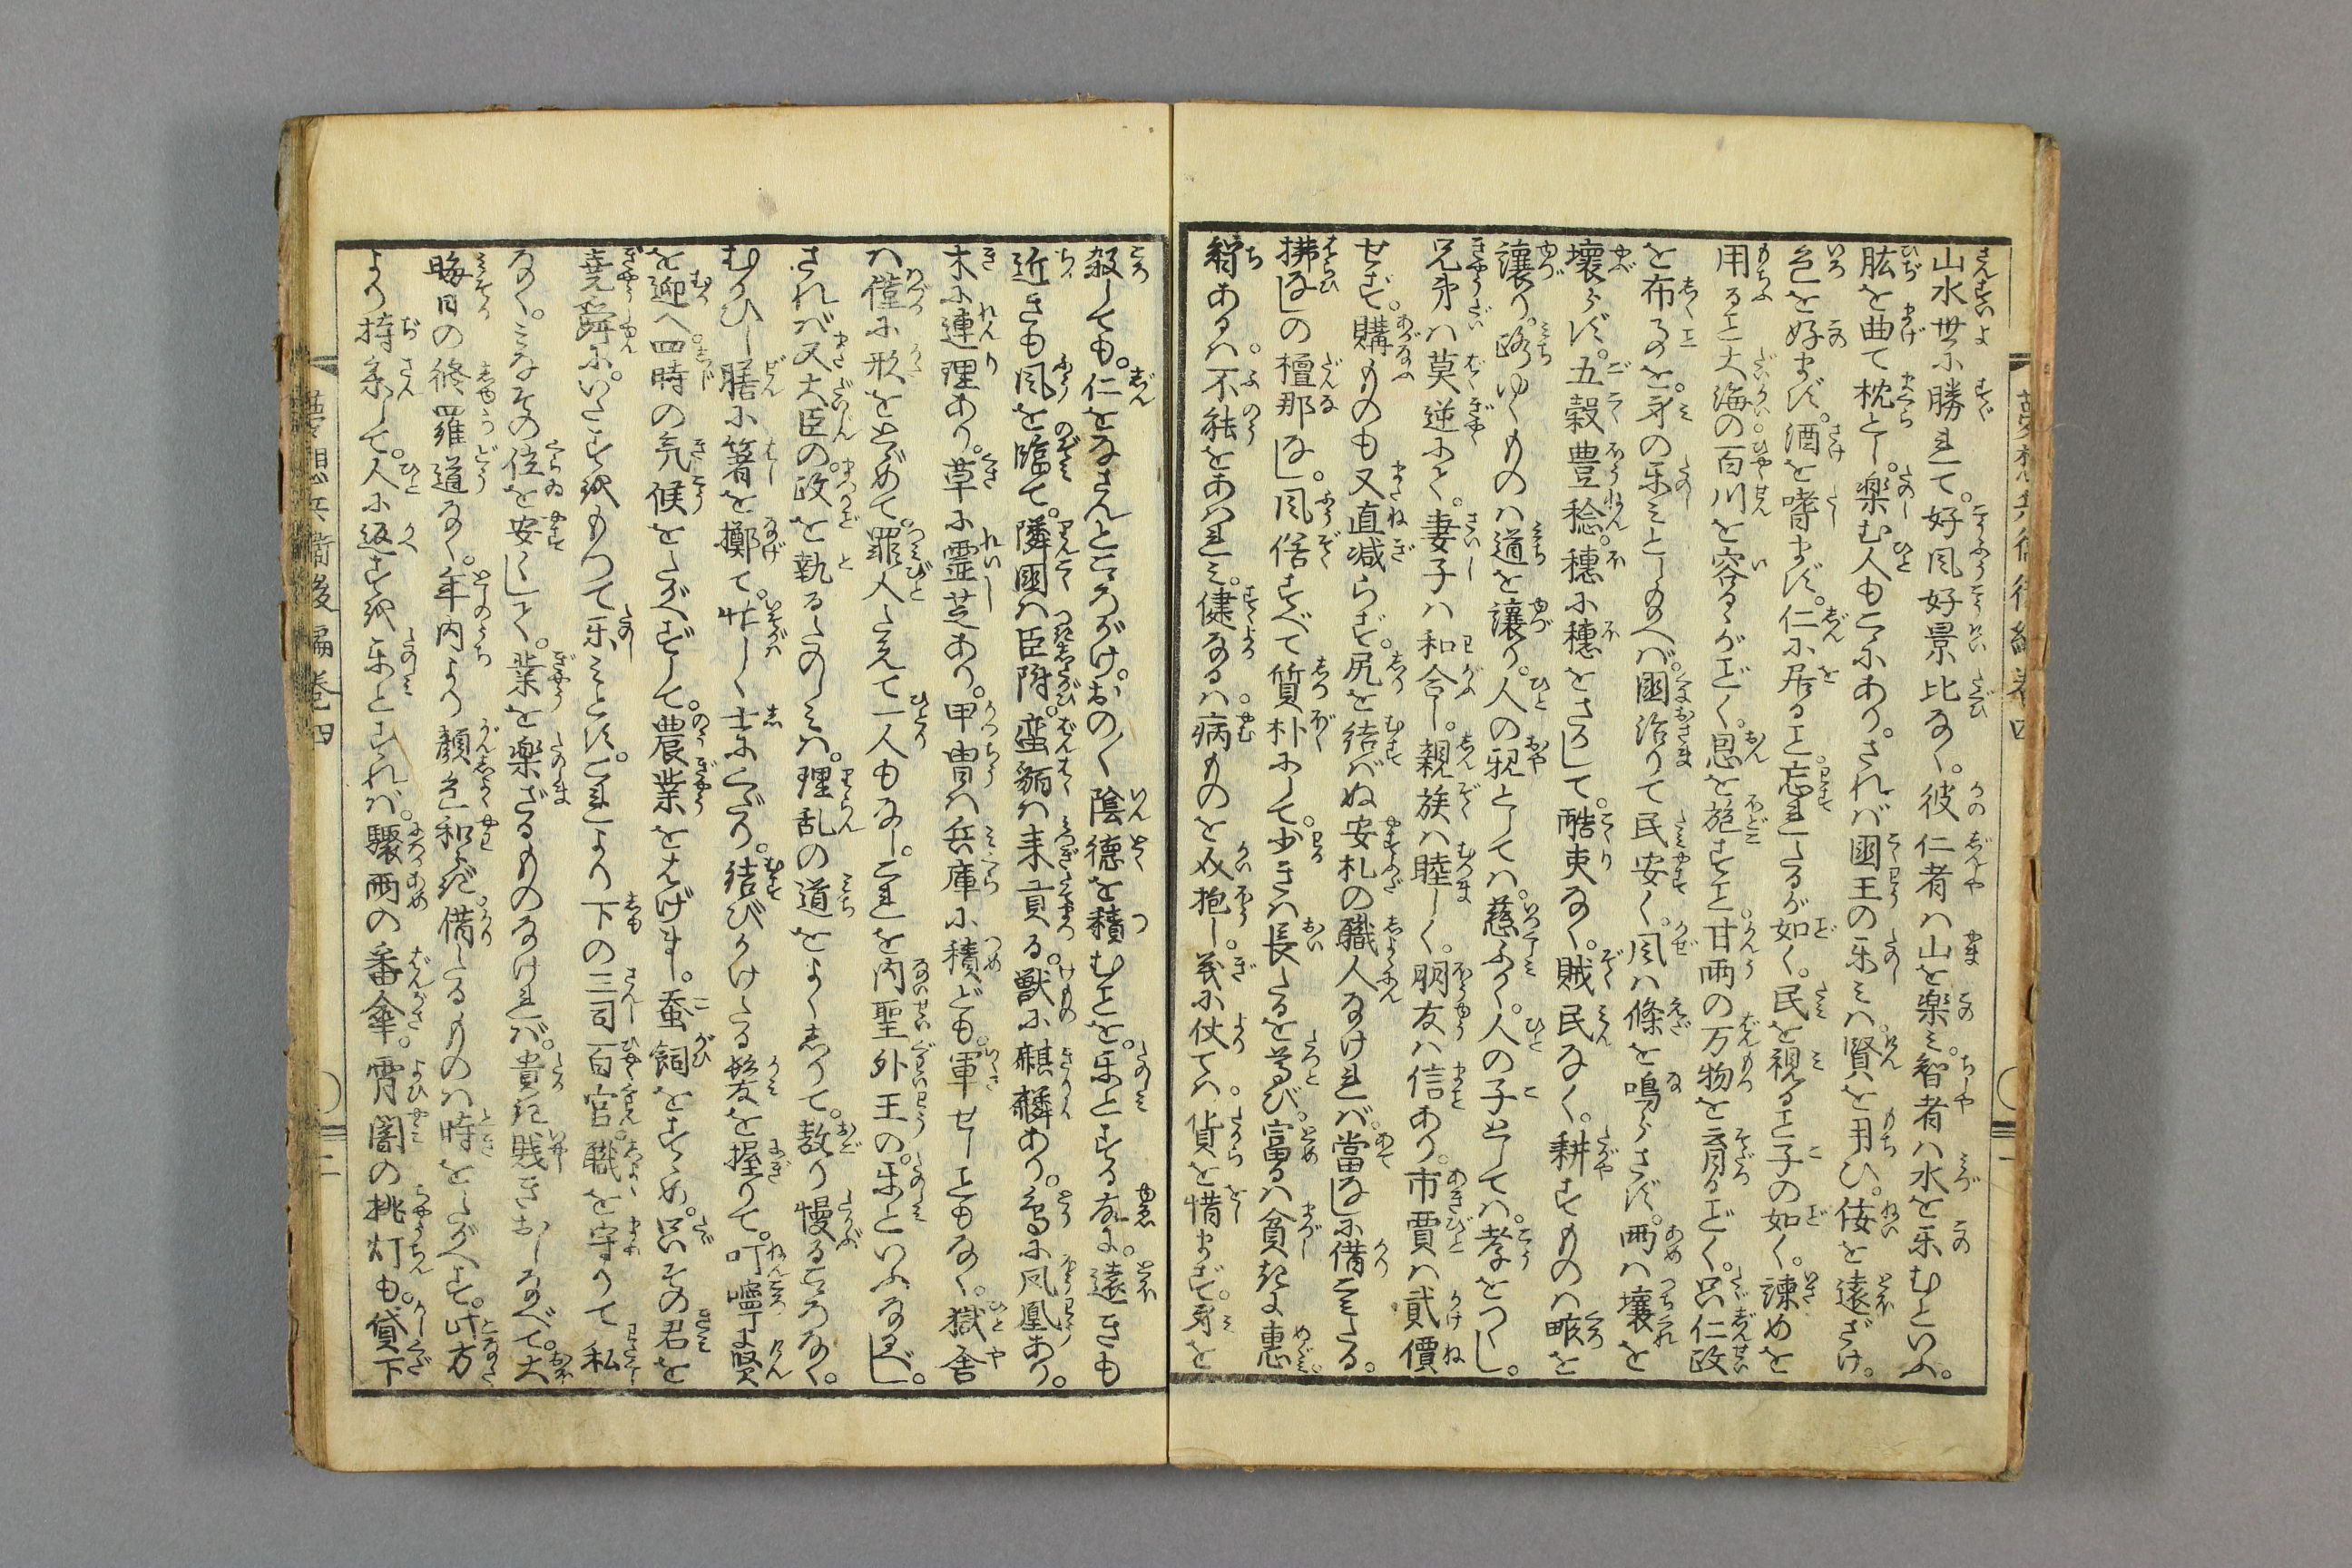 山水世に勝れて。好風好景比なく。彼仁者は山を楽み。智者は水を楽むといふ。
肱を曲て枕とし。楽む人もこゝにあり。されば国王の楽みは。賢を用ひ。佞を遠ざけ。
色を好まず。酒を嗜まず。仁に居ること。忘れたるが如く。民を視ること子の如く。諫めを
用ること大海の。百川を容るゝがごとく。恩を施すこと。甘雨の万物を育るごとく。只仁政
を布るのを。身の楽みとし給へば。国治りて民安く。風は條を鳴らさず。雨は壌を
壊らず。五穀豊稔。穂に穂をさして。酷吏なく。賊民なく。耕すものは畷を
譲り。路ゆくものは道を譲り。人の親としては。慈ふかく。人の子としては。孝をつくし。
兄弟は莫逆にして。妻子は和合し。親族は睦しく。朋友は信あり。市賈は貳價
せず。購ものも又直減らず。尻を結ばぬ安札の職人なければ。當なしに借こみたる。
拂なしの檀那なし。風俗すべて質朴にして。少きは長たるを尊び。富るは貧きに惠。
智あるは。不能をあはれみ。健なるは。病ものを介抱し。義に仗ては。貨を惜まず。身を
殺しても。仁をなさんとこゝろがけ。おの〳〵陰徳を積むことを。楽とする故に。遠きも
近きも風を臨て。隣国は臣附。蛮貊は来貢る。獣に麒麟あり。鳥に鳳凰あり。
木に連理あり。草に霊芝あり。甲冑は兵庫に積ども。軍せしこともなく。獄舎
は僅に形をとゞめて。罪人たえて一人もなし。これを内聖外王の。楽といふなるべし。
されば又大臣の。政を執るたのしみは。理乱の道をよくしりて。敖り慢るこゝろなく。
むかひし膳に箸を擲て。忙しく士にくだり。結びかけたる髪を握りて。叮嚀に賢
を迎へ。四時の気候をたがへずして。農業をはげまし。蚕飼をすゝめ。只その君を
堯舜に。いたすをもつて楽みとす。これより下の三司百官。職を守りて私
なく。みなその位を安くして。業を楽ざるものなければ。貴き賤きおしなべて。大
晦日の修羅道なく。年内より顔色和らぎ。借たるものは時をたがへず。此方
より持参して。人に返すを楽とすれば。驟雨の番傘。宵闇の挑灯も。貸下
夢想兵衛後編巻四
二